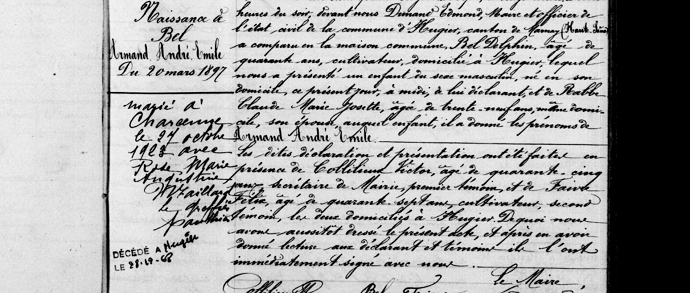 Naissance à
Bel
Armand André Emile
Du 20 mars 1897
marié à
Charcenne
le 27 octobre
1928 avec
Rose Marie
Augustine
le greffier
DÉCÉDÉ A Hugier
LE
heures du soir, devant nous Durand Edmond, Maire et officier de
l'état civil de la commune d'Hugier, canton de Marnay (Haute Saône)
a comparu en la maison commune, Bel Delphin, âgé de
quarante ans, cultivateur, domicilié à Hugier, lequel
nous a présenté un enfant du sexe masculin, né en son
domicile, ce présent jour, à midi, de lui déclarant, et de
Claude Marie Josette, âgée de trente-neuf ans, même domi-
cile, son épouse, auquel enfant, il a donné les prénoms de
Armand André Emile.
Les dites déclaration et présentation ont été faites en
présence de Victor, âgé de quarante cinq
ans, secrétaire de Mairie, premier témoin, et de Faivre
Félix, âgé de quarante sept ans, cultivateur, second
témoin, les deux domiciliés à Hugier. De quoi nous
avons aussitôt dressé le présent acte, et après en avoir
donné lecture aux déclarant et témoins ils l'ont
immédiatement signé avec nous.
Le Maire,
Bel